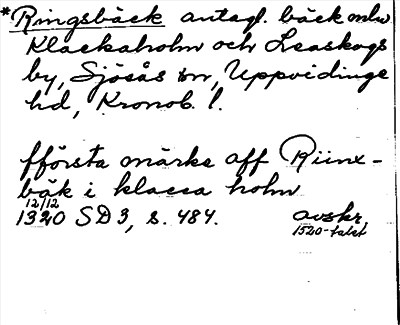 *Ringsbäck antagl. bäck mlm
Klackaholm och Leaskogs
by, Sjösås sn, Uppvidinge
hd, Kronob. l.
fförsta märke aff Riinx-
bäk i klacca holm
12/12
1320 SD 3, s. 484.
avskr.
1520-talet